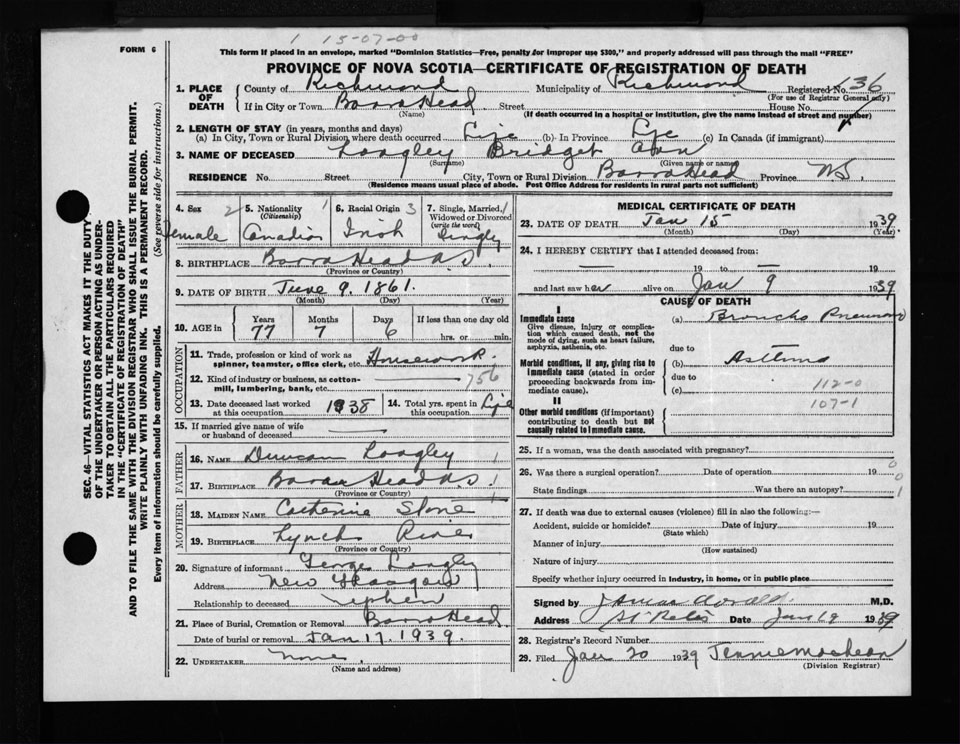 1 15-07-00
FORM 6
This form if placed in an envelope, marked "Dominion Statistics—Free, penalty for improper use $300," and properly addressed will pass through the mail "FREE"
PROVINCE OF NOVA SCOTIA—CERTIFICATE OF REGISTRATION OF DEATH
SEC. 46—VITAL STATISTICS ACT MAKES IT THE DUTY
OF THE UNDERTAKER OR PERSON ACTING AS UNDER-
TAKER TO OBTAIN ALL THE PARTICULARS REQUIRED
IN THE "CERTIFICATE OF REGISTRATION OF DEATH"
AND TO FILE THE SAME WITH THE DIVISION REGISTRAR WHO SHALL ISSUE THE BURIAL PERMIT.
WRITE PLAINLY WITH UNFADING INK. THIS IS A PERMANENT RECORD.
Every item of information should be carefully supplied. (See reverse side for instructions.)
1. PLACE OF DEATH County of Richmond Municipality of Richmond Registered No. 136
(For use of Registrar General only)
If in City or Town Barra Head Street House No.
(Name) (If death occurred in a hospital or institution, give the name instead of street and number)
2. LENGTH OF STAY (in years, months and days)
(a) In City, Town or Rural Division where death occurred Life (b) In Province Life (c) In Canada (if immigrant)
3. NAME OF DECEASED Langley Bridget Ann
(Surname) (Given name or names)
RESIDENCE No. Street City, Town or Rural Division Barra Head Province NS
(Residence means usual place of abode. Post Office Address for residents in rural parts not sufficient)
4. Sex 2 Female
5. Nationality (Citizenship) 1 Canadian
6. Racial Origin 3 Irish
7. Single, Married, Widowed or Divorced (write the word) Single
8. BIRTHPLACE Barra Head N.S.
(Province or Country)
9. DATE OF BIRTH June 9. 1861.
(Month) (Day) (Year)
10. AGE in Years Months Days If less than one day old
77 7 6 hrs. or min.
OCCUPATION
11. Trade, profession or kind of work as spinner, teamster, office clerk, etc. Housework.
12. Kind of industry or business, as cotton-mill, lumbering, bank, etc. 756
13. Date deceased last worked at this occupation 1938
14. Total yrs. spent in this occupation Life
15. If married give name of wife or husband of deceased
FATHER
16. NAME Duncan Langley
17. BIRTHPLACE Barra Head N.S.
(Province or Country)
MOTHER
18. MAIDEN NAME Catherine Stone
19. BIRTHPLACE Lynch River
(Province or Country)
20. Signature of informant George Langley
Address New Glasgow
Relationship to deceased nephew
21. Place of Burial, Cremation or Removal Barra Head
Date of burial or removal Jan 17. 1939.
22. UNDERTAKER None
(Name and address)
MEDICAL CERTIFICATE OF DEATH
23. DATE OF DEATH Jan 15 1939
(Month) (Day) (Year)
24. I HEREBY CERTIFY that I attended deceased from:
19 to 19
and last saw her alive on Jan 9 1939
CAUSE OF DEATH
I
Immediate cause
Give disease, injury or complication which caused death, not the mode of dying, such as heart failure, asphyxia, asthenia, etc.
(a) Broncho Pneumonia
due to
Morbid conditions, if any, giving rise to immediate cause (stated in order proceeding backwards from immediate cause).
(b) Asthma
due to
(c) 112-0
107-1
II
Other morbid conditions (if important) contributing to death but not causally related to immediate cause.
25. If a woman, was the death associated with pregnancy?
26. Was there a surgical operation? Date of operation 19 0
State findings Was there an autopsy? 0
1
27. If death was due to external causes (violence) fill in also the following:—
Accident, suicide or homicide? Date of injury 19
(State which)
Manner of injury
(How sustained)
Nature of injury
Specify whether injury occurred in industry, in home, or in public place
Signed by M.D.
Address St Peters Date Jan 19 1939
28. Registrar's Record Number
29. Filed Jan 20 1939 Jennie MacLean
(Division Registrar)